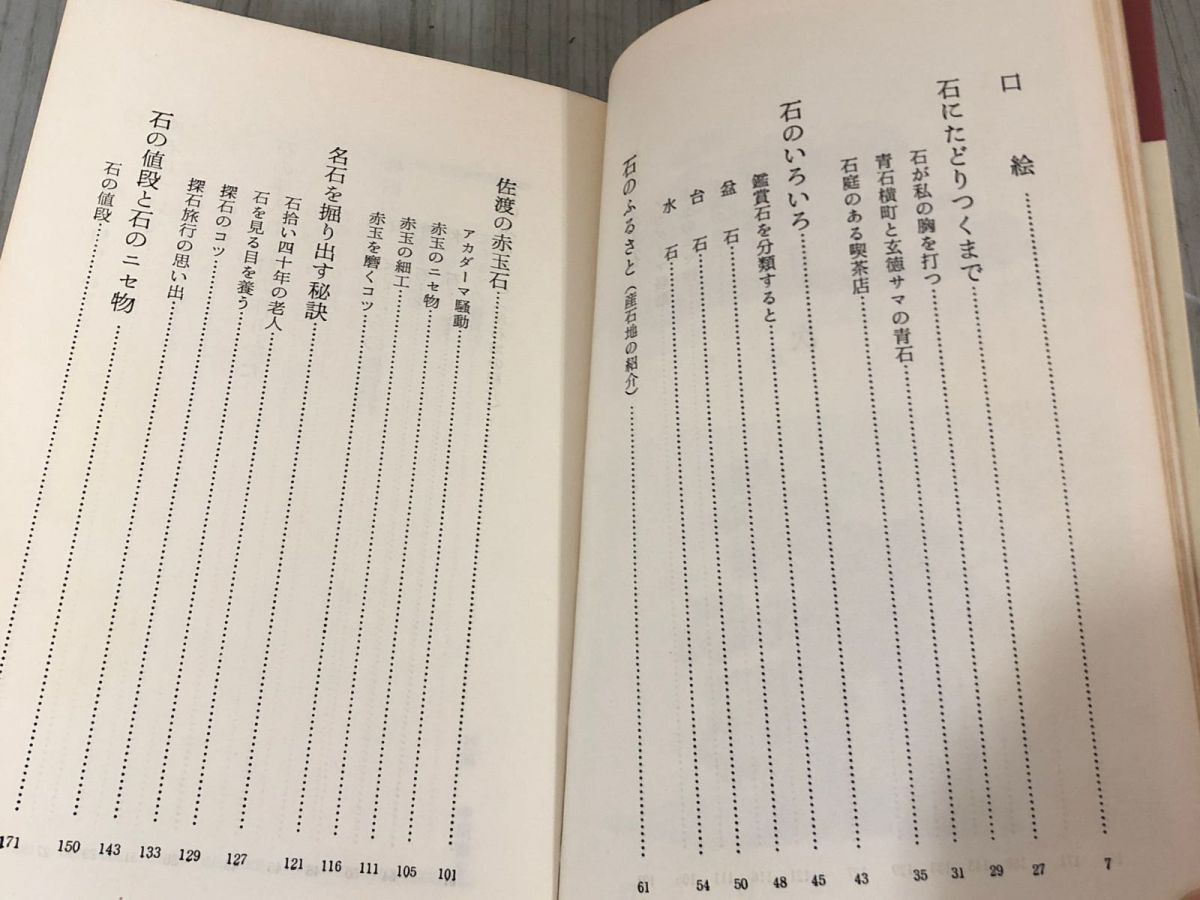 口絵 7
石にたどりつくまで 27
石が私の胸を打つ 29
青石横町と玄徳サマの青石 31
石庭のある喫茶店 35
石のいろいろ 43
鑑賞石を分類すると 45
盆石 48
台石 50
水石 54
石のふるさと(産石地の紹介) 61
佐渡の赤玉石 101
アカダーマ騒動 105
赤玉のニセ物 111
赤玉の細工 116
赤玉を磨くコツ 121
名石を掘り出す秘訣 127
石拾い四十年の老人 129
石を見る目を養う 133
探石のコツ 143
探石旅行の思い出 150
石の値段と石のニセ物 171
石の値段